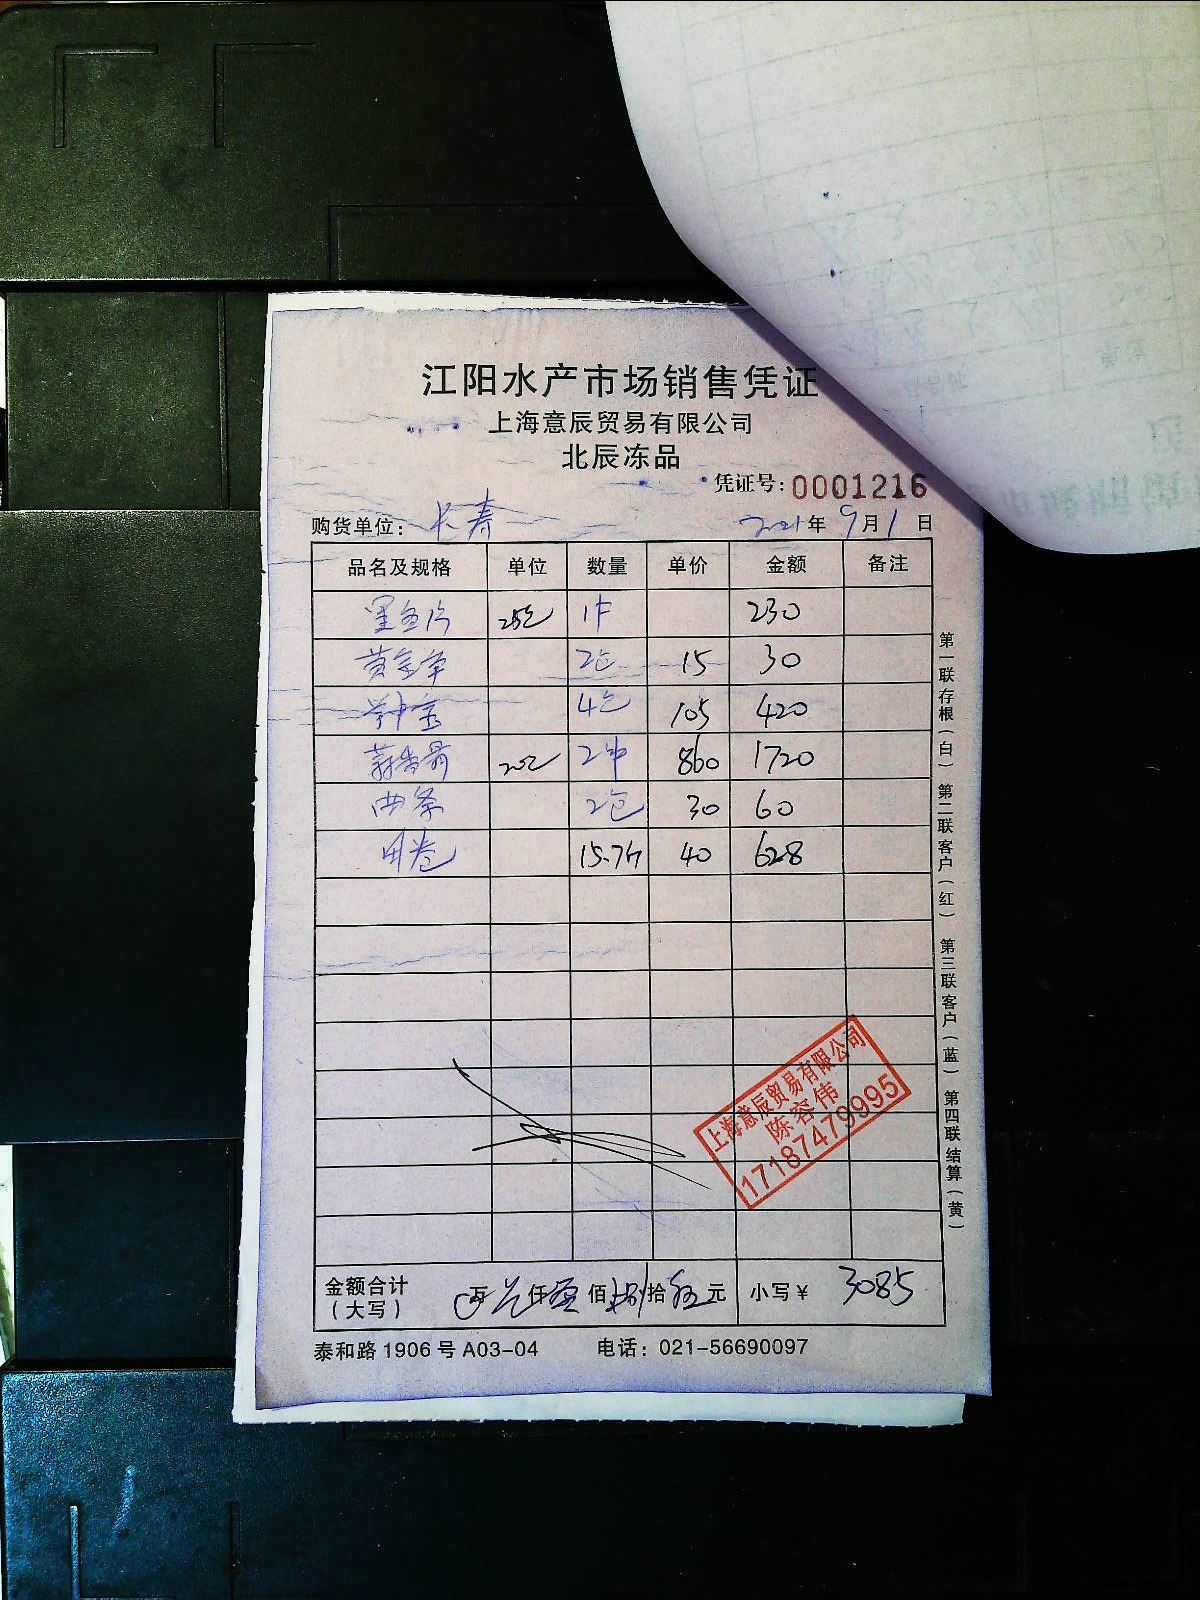 江阳水产市场销售凭证
上海意辰贸易有限公司
北辰冻品
凭证号:0001216
购货单位: 长寿 2021年 9月 1 日
品名及规格 单位 数量 单价 金额 备注
墨鱼片 25包 1件 230
黄金 2包 15 30
4包 105 420
蒜香骨 20包 2件 860 1720
薯条 2包 30 60
15.7斤 40 628
第一联存根(白) 第二联客户(红) 第三联客户(蓝) 第四联结算(黄)
上海意辰贸易有限公司
陈容伟
17187479995
金额合计
(大写) 万 仟 佰 捌 拾 伍 元 小写¥ 3085
泰和路1906号A03-04 电话: 021-56690097